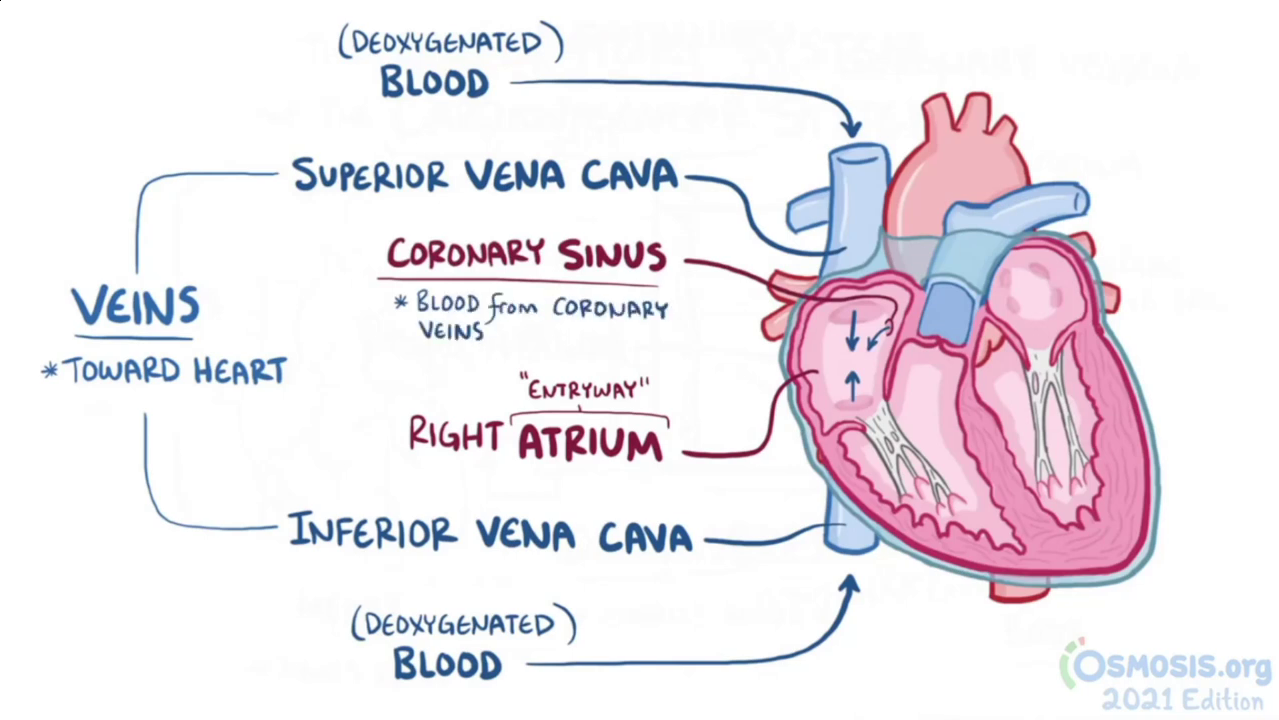 (DEOXYGENATED)
BLOOD
SUPERIOR VENA CAVA
CORONARY SINUS
* BLOOD from CORONARY
VEINS
VEINS
* TOWARD HEART
"ENTRYWAY"
RIGHT ATRIUM
INFERIOR VENA CAVA
(DEOXYGENATED)
BLOOD
OSMOSIS.org
2021 Edition